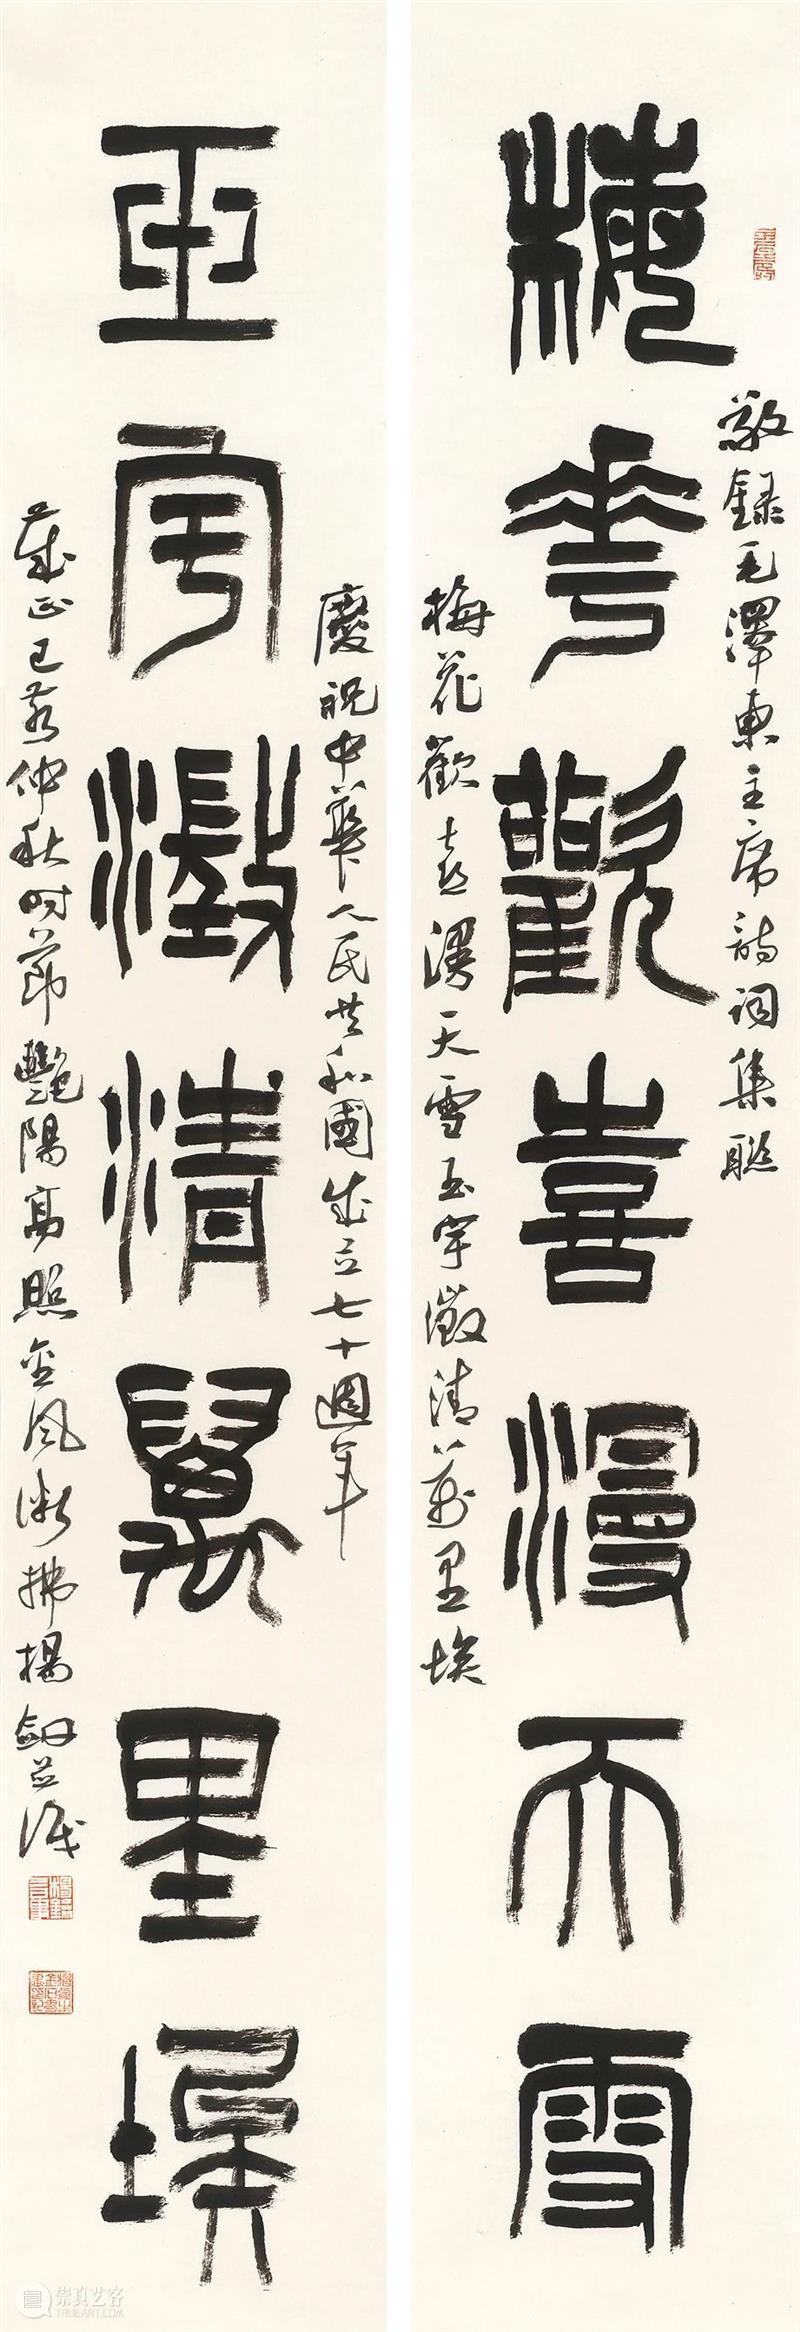 敬録毛澤東主席詩詞集聯
梅花歡喜漫天雪
梅花歡喜漫天雪玉宇澂清萬里埃
慶祝中華人民共和國成立七十週年
玉宇澂清萬里埃
歲正己亥仲秋時節艷陽高照金風漸拂楊劍並識
崇真艺客
TRUEART.COM